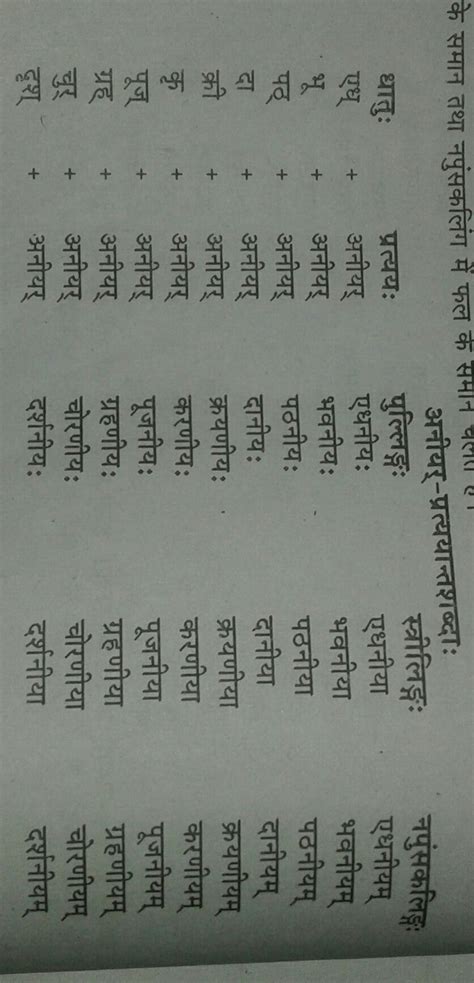 के समान तथा नपुंसकलिंग में फल के समान चलता है।
अनीयर्-प्रत्ययान्तशब्दाः
धातुः प्रत्ययः पुल्लिङ्गः स्त्रीलिङ्गः नपुंसकलिङ्गः
एध् + अनीयर् एधनीयः एधनीया एधनीयम्
भू + अनीयर् भवनीयः भवनीया भवनीयम्
पठ् + अनीयर् पठनीयः पठनीया पठनीयम्
दा + अनीयर् दानीयः दानीया दानीयम्
क्री + अनीयर् क्रयणीयः क्रयणीया क्रयणीयम्
कृ + अनीयर् करणीयः करणीया करणीयम्
पूज् + अनीयर् पूजनीयः पूजनीया पूजनीयम्
ग्रह् + अनीयर् ग्रहणीयः ग्रहणीया ग्रहणीयम्
चुर् + अनीयर् चोरणीयः चोरणीया चोरणीयम्
दृश् + अनीयर् दर्शनीयः दर्शनीया दर्शनीयम्